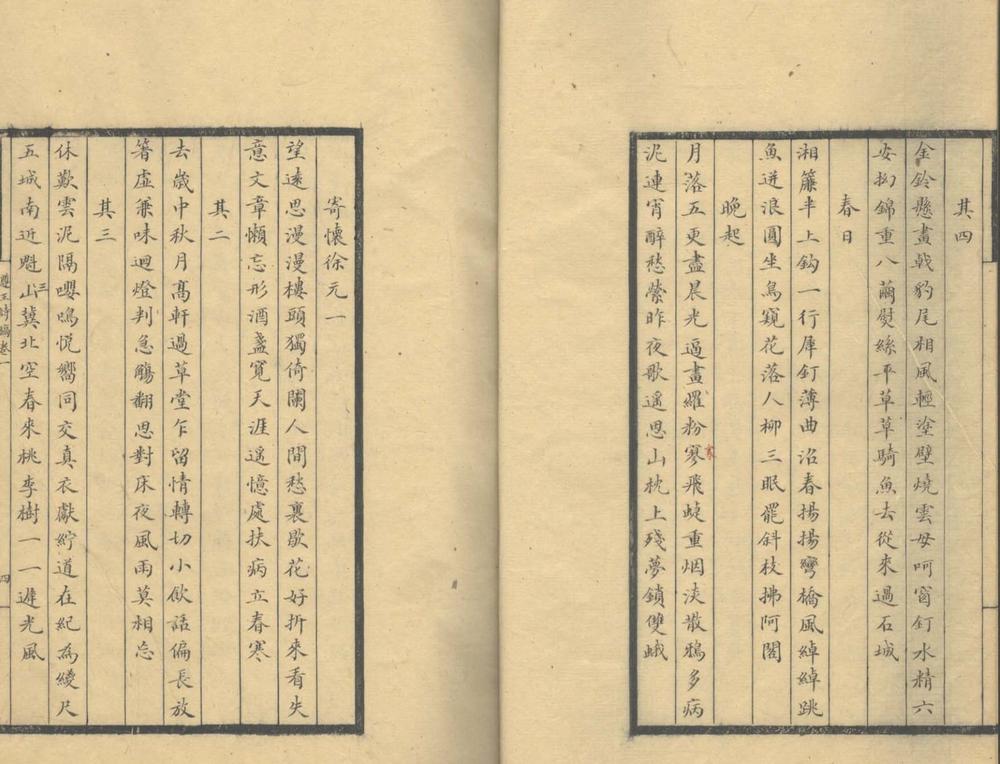 其四
金鈴懸畫戟豹尾相風輕塗壁燒雲母呵窗釘水精六
安拗錦重八繭熨絲平草草騎魚去從來過石城
春日
湘簾半上鈎一行犀釘薄曲沼春揚揚彎橋風綽綽跳
魚迸浪圓坐鳥窺花落人柳三眠罷斜枝拂阿閣
晚起
月落五更盡晨光逼畫羅粉寥飛蜨重烟淡散鴉多病
泥連宵醉愁縈昨夜歌遥思山枕上殘夢鎖雙蛾
寄懷徐元一
望遠思漫漫樓頭獨倚闌人間愁裏歇花好折來看失
意文章懶忘形酒盞寬天涯遥憶處扶病立春寒
其二
去歲中秋月高軒過草堂乍留情轉切小飲話偏長放
箸虛兼味迴燈判急觴翻思對床夜風雨莫相忘
其三
休歎雲泥隔嚶鳴悅響同交真衣獻紵道在紀為綾尺
五城南近魁三山冀北空春來桃李樹一一遲光風
遵王詩編卷一
四